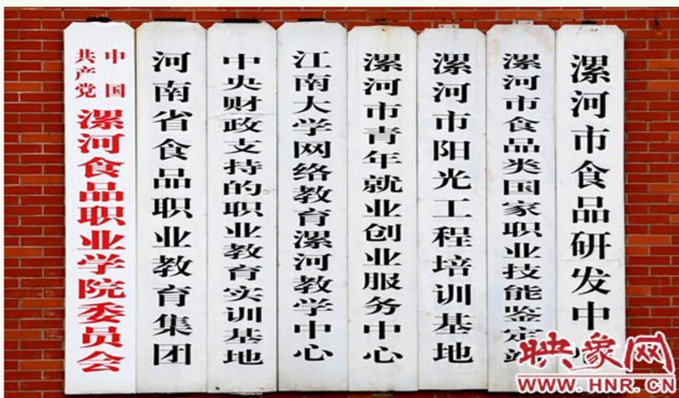 中国
共产党
漯河食品职业学院委员会
河南省食品职业教育集团
中央财政支持的职业教育实训基地
江南大学网络教育漯河教学中心
漯河市青年就业创业服务中心
漯河市阳光工程培训基地
漯河市食品类国家职业技能鉴定站
漯河市食品研发中
映象网
WWW.HNR.CN